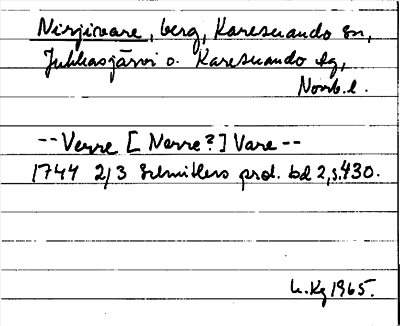 Nirjivare, berg, Karesuando sn,
Jukkasjärvi o. Karesuando lg,
Norrb. l.
-- Verre [Nerre?] Vare --
1744 2/3 Schnitlers prot. bd 2, s. 430.
Kg 1965.